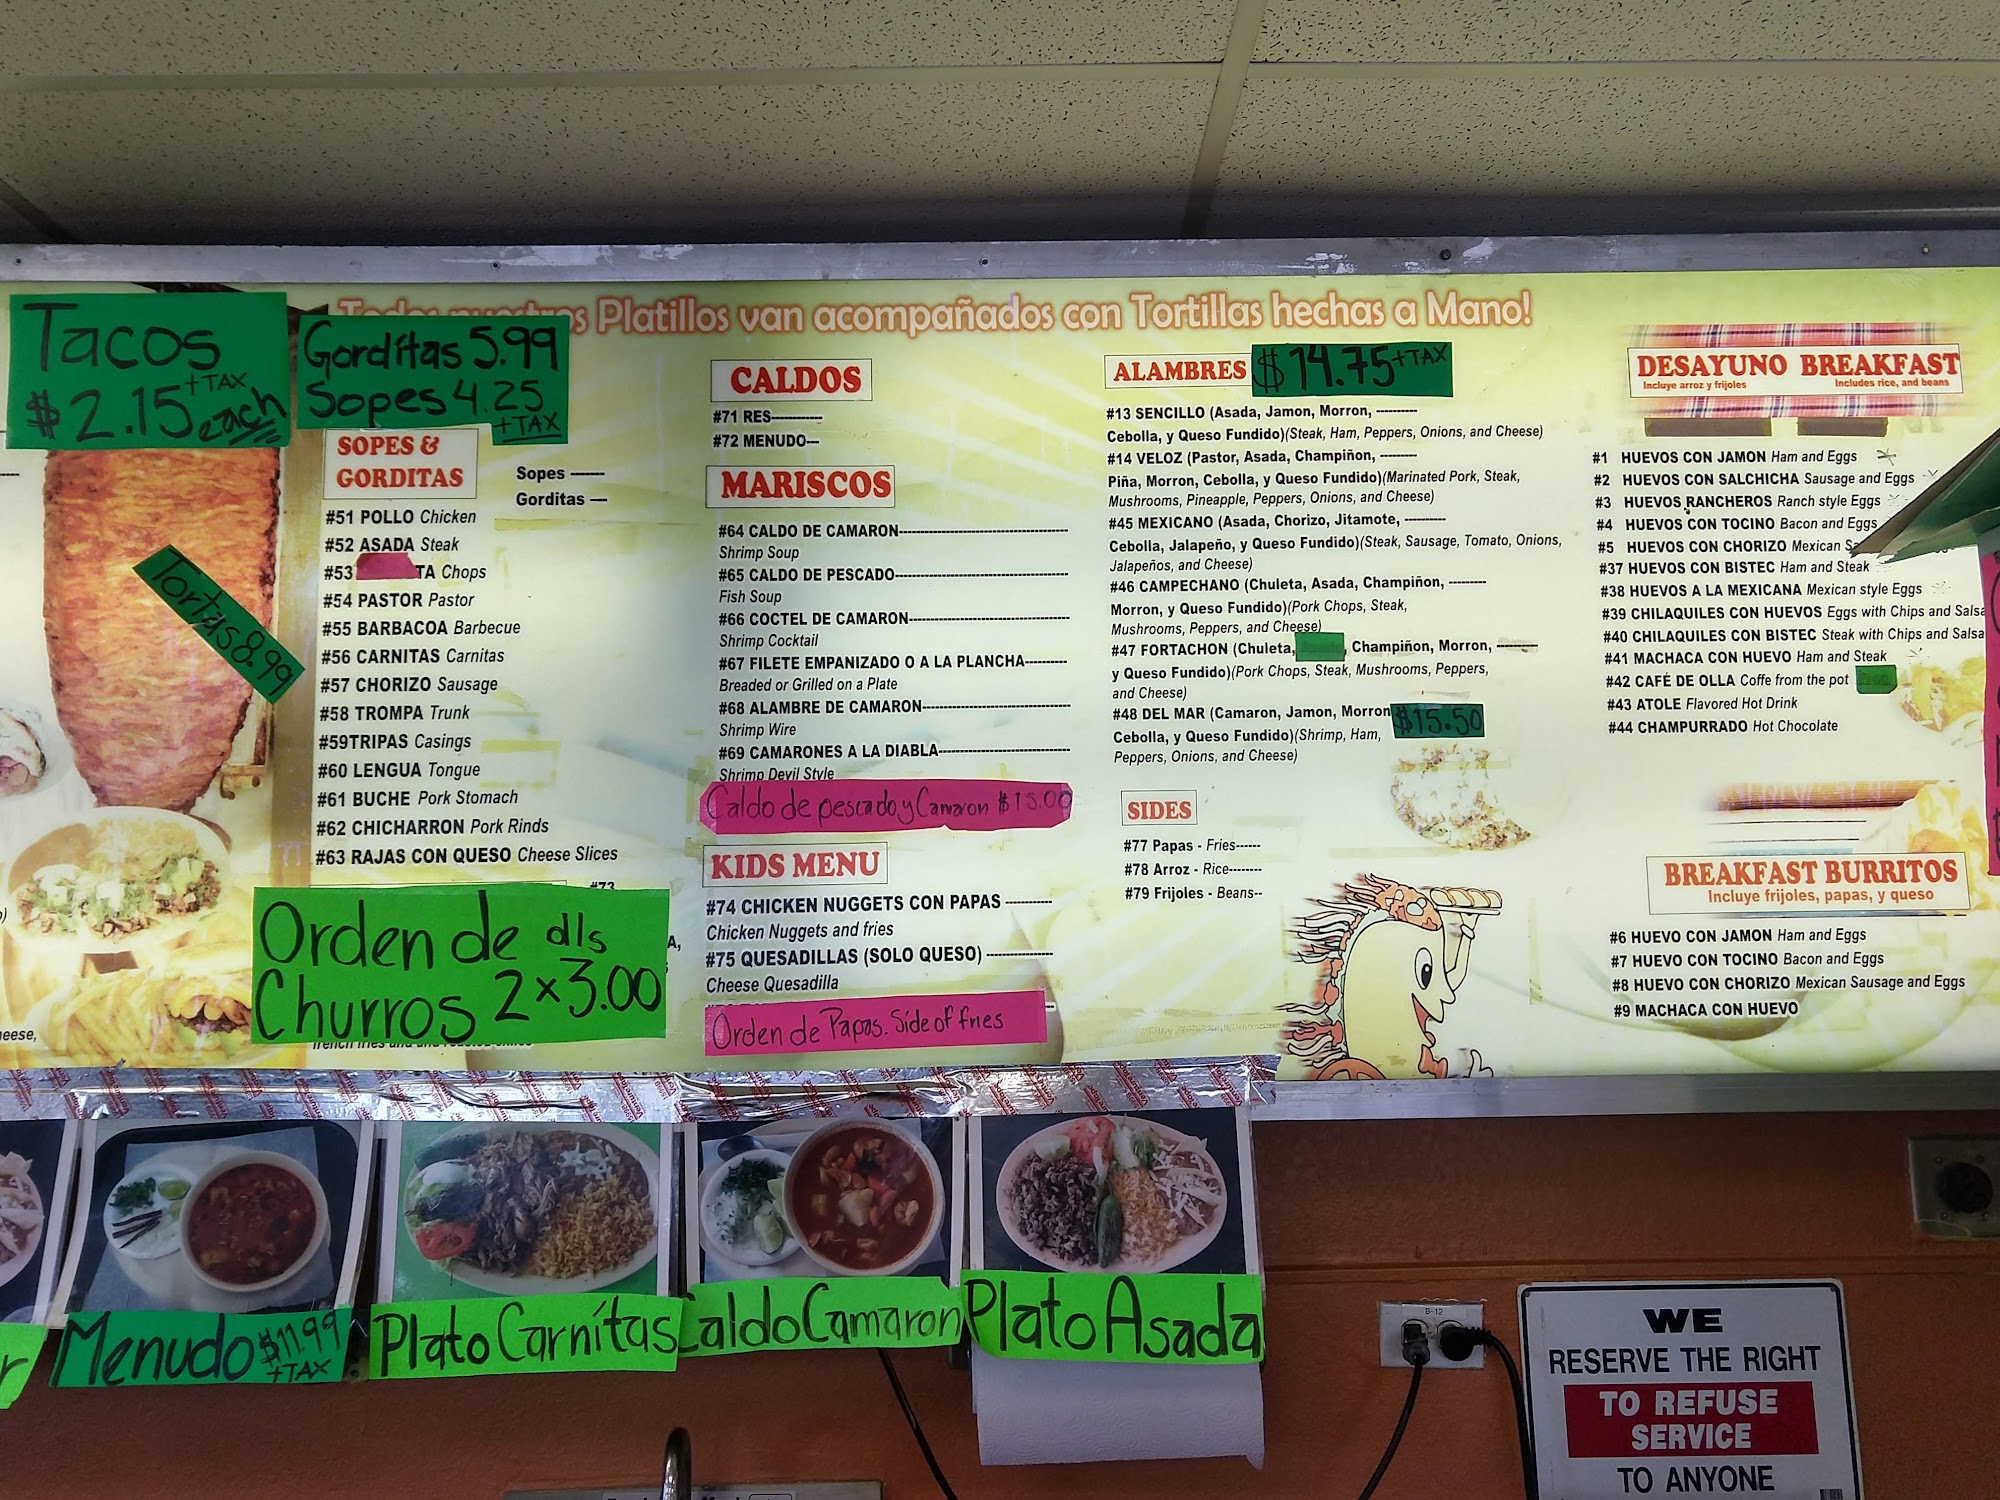 Todos nuestros Platillos van acompañados con Tortillas hechas a Mano!
Tacos
$2.15 +TAX
each
Gorditas 5.99
Sopes 4.25
+TAX
SOPES &
GORDITAS
Sopes -------
Gorditas ---
#51 POLLO Chicken
#52 ASADA Steak
#53 TA Chops
#54 PASTOR Pastor
#55 BARBACOA Barbecue
#56 CARNITAS Carnitas
#57 CHORIZO Sausage
#58 TROMPA Trunk
#59TRIPAS Casings
#60 LENGUA Tongue
#61 BUCHE Pork Stomach
#62 CHICHARRON Pork Rinds
#63 RAJAS CON QUESO Cheese Slices
Tortas 8.99
#73
A,
Orden de dls
Churros 2x3.00
CALDOS
#71 RES------------
#72 MENUDO---
MARISCOS
#64 CALDO DE CAMARON-----------------------------------
Shrimp Soup
#65 CALDO DE PESCADO-----------------------------------
Fish Soup
#66 COCTEL DE CAMARON---------------------------------
Shrimp Cocktail
#67 FILETE EMPANIZADO O A LA PLANCHA----------
Breaded or Grilled on a Plate
#68 ALAMBRE DE CAMARON------------------------------
Shrimp Wire
#69 CAMARONES A LA DIABLA---------------------------
Shrimp Devil Style
Caldo de pescado y Camaron $15.00
KIDS MENU
#74 CHICKEN NUGGETS CON PAPAS -----------
Chicken Nuggets and fries
#75 QUESADILLAS (SOLO QUESO) ----------------
Cheese Quesadilla
Orden de Papas. Side of fries
ALAMBRES $14.75 +TAX
#13 SENCILLO (Asada, Jamon, Morron, ----------
Cebolla, y Queso Fundido)(Steak, Ham, Peppers, Onions, and Cheese)
#14 VELOZ (Pastor, Asada, Champiñon, ---------
Piña, Morron, Cebolla, y Queso Fundido)(Marinated Pork, Steak,
Mushrooms, Pineapple, Peppers, Onions, and Cheese)
#45 MEXICANO (Asada, Chorizo, Jitamote, ----------
Cebolla, Jalapeño, y Queso Fundido)(Steak, Sausage, Tomato, Onions,
Jalapeños, and Cheese)
#46 CAMPECHANO (Chuleta, Asada, Champiñon, ---------
Morron, y Queso Fundido)(Pork Chops, Steak,
Mushrooms, Peppers, and Cheese)
#47 FORTACHON (Chuleta, Champiñon, Morron, ----------
y Queso Fundido)(Pork Chops, Steak, Mushrooms, Peppers,
and Cheese)
#48 DEL MAR (Camaron, Jamon, Morron $15.50
Cebolla, y Queso Fundido)(Shrimp, Ham,
Peppers, Onions, and Cheese)
SIDES
#77 Papas - Fries------
#78 Arroz - Rice--------
#79 Frijoles - Beans--
DESAYUNO BREAKFAST
Incluye arroz y frijoles Includes rice, and beans
#1 HUEVOS CON JAMON Ham and Eggs
#2 HUEVOS CON SALCHICHA Sausage and Eggs
#3 HUEVOS RANCHEROS Ranch style Eggs
#4 HUEVOS CON TOCINO Bacon and Eggs
#5 HUEVOS CON CHORIZO Mexican
#37 HUEVOS CON BISTEC Ham and Steak
#38 HUEVOS A LA MEXICANA Mexican style Eggs
#39 CHILAQUILES CON HUEVOS Eggs with Chips and Salsa
#40 CHILAQUILES CON BISTEC Steak with Chips and Salsa
#41 MACHACA CON HUEVO Ham and Steak
#42 CAFÉ DE OLLA Coffe from the pot
#43 ATOLE Flavored Hot Drink
#44 CHAMPURRADO Hot Chocolate
BREAKFAST BURRITOS
Incluye frijoles, papas, y queso
#6 HUEVO CON JAMON Ham and Eggs
#7 HUEVO CON TOCINO Bacon and Eggs
#8 HUEVO CON CHORIZO Mexican Sausage and Eggs
#9 MACHACA CON HUEVO
Menudo $11.99
+TAX
Plato Carnitas
Caldo Camaron
Plato Asada
B-12
WE
RESERVE THE RIGHT
TO REFUSE
SERVICE
TO ANYONE